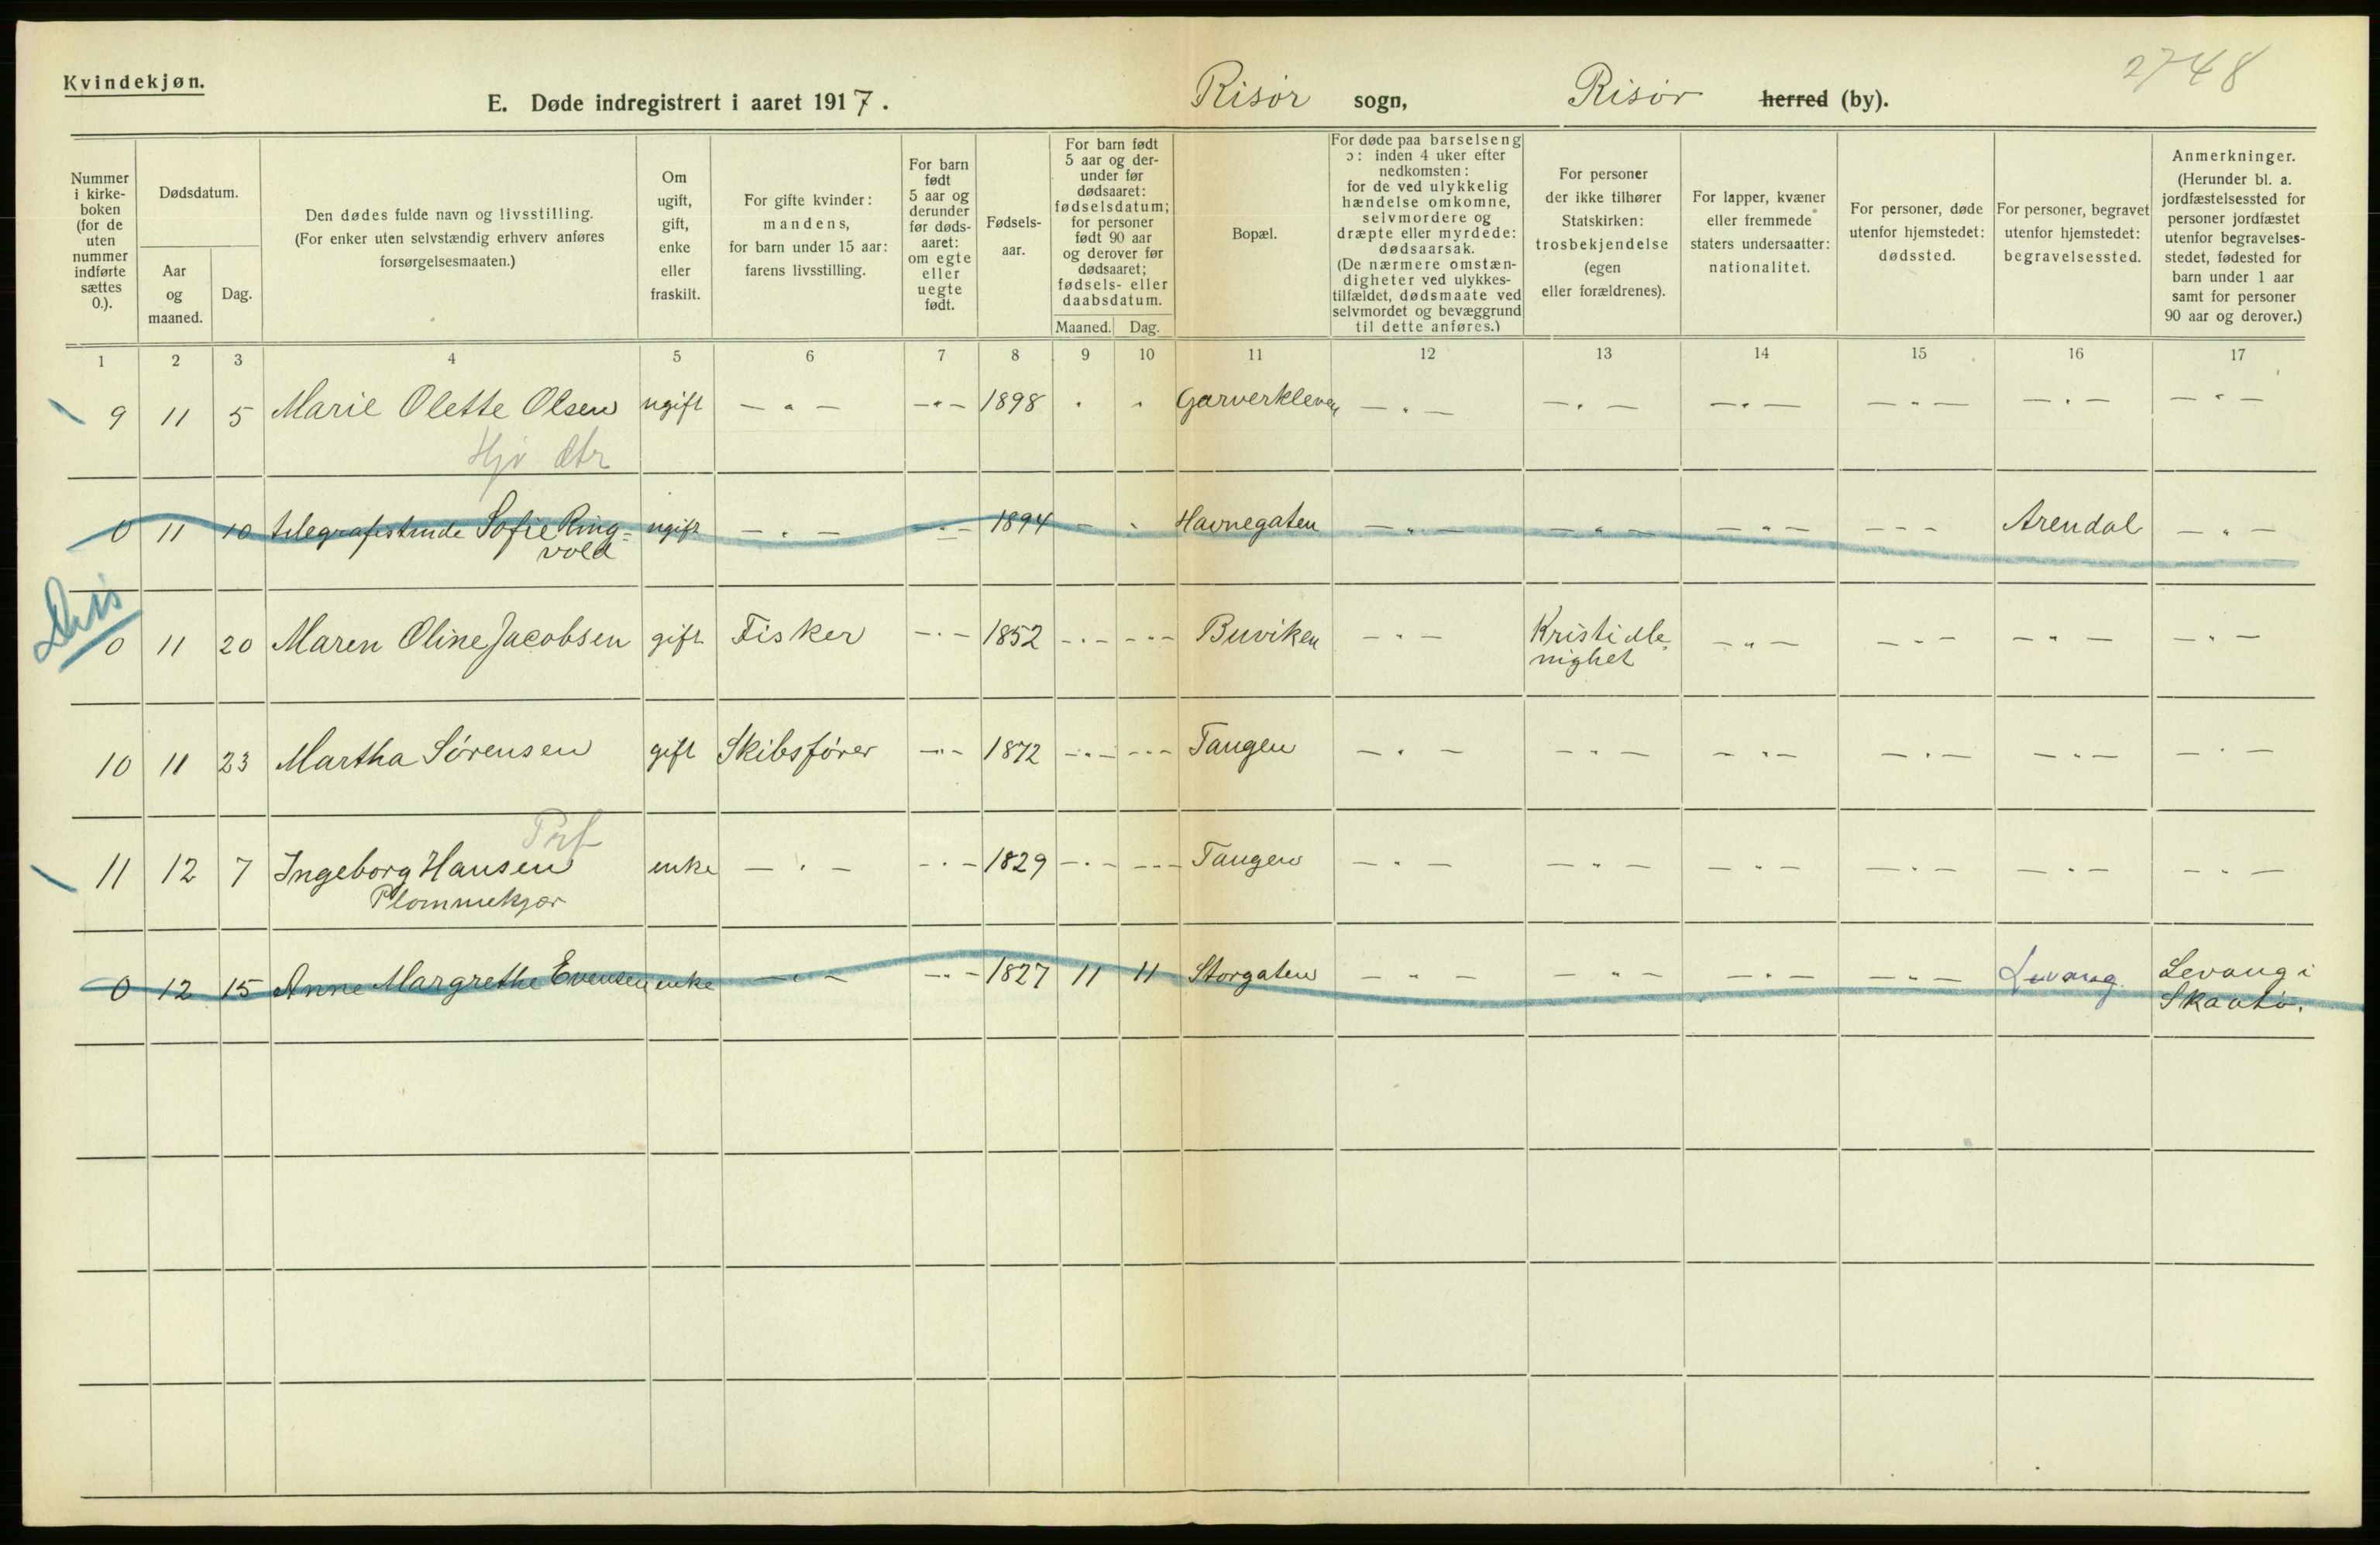 Kvindekjøn.
2748
E. Døde indregistrert i aaret 1917. Risør sogn, Risør herred (by).
Nummer i kirke-boken (for de uten nummer indførte sættes 0.).
Dødsdatum.
Aar og maaned.
Dag.
Den dødes fulde navn og livsstilling.
(For enker uten selvstændig erhverv anføres forsørgelsesmaaten.)
Om ugift, gift, enke eller fraskilt.
For gifte kvinder: mandens, for barn under 15 aar: farens livsstilling.
For barn født 5 aar og derunder før døds-aaret: om egte eller uegte født.
Fødsels-aar.
For barn født 5 aar og der-under før dødsaaret: fødselsdatum; for personer født 90 aar og derover før dødsaaret; fødsels- eller daabsdatum.
Maaned. Dag.
Bopæl.
For døde paa barselseng ɔ: inden 4 uker efter nedkomsten: for de ved ulykkelig hændelse omkomne, selvmordere og dræpte eller myrdede: dødsaarsak. (De nærmere omstæn-digheter ved ulykkes-tilfældet, dødsmaate ved selvmordet og bevæggrund til dette anføres.)
For personer der ikke tilhører Statskirken: trosbekjendelse (egen eller forældrenes).
For lapper, kvæner eller fremmede staters undersaatter: nationalitet.
For personer, døde utenfor hjemstedet: dødssted.
For personer, begravet utenfor hjemstedet: begravelsessted.
Anmerkninger. (Herunder bl. a. jordfæstelsessted for personer jordfæstet utenfor begravelses-stedet, fødested for barn under 1 aar samt for personer 90 aar og derover.)
1 2 3 4 5 6 7 8 9 10 11 12 13 14 15 16 17
9 11 5 Marie Olette Olsen ugift — " — — " — 1898 " " Garverkleven — " — — " — — " — — " — — " — — " —
Hjv dtr
0 11 10 telegrafistinde Sofie Ring= ugift — " — — " — 1894 — " Havnegaten — " — — " — — " — — - — Arendal — " —
vold
0 11 20 Maren Oline Jacobsen gift Fisker — " — 1852 — " — — " — Buviken — " — Kristi Me= — " — — - — — " — — " —
nighet
10 11 23 Martha Sørensen gift Skibsfører — " — 1872 — " — — " — Tangen — " — — " — — " — — " — — " — — " —
11 12 7 Ingeborg Hansen enke — " — — " — 1829 — " — — - — Tangen — " — — " — — " — — " — — " — — " —
Plommekjær
0 12 15 Anne Margrethe Evensen enke — " — — " — 1827 11 11 Storgaten — " — — " — — " — — " — Levang Levang i
Skaatø.